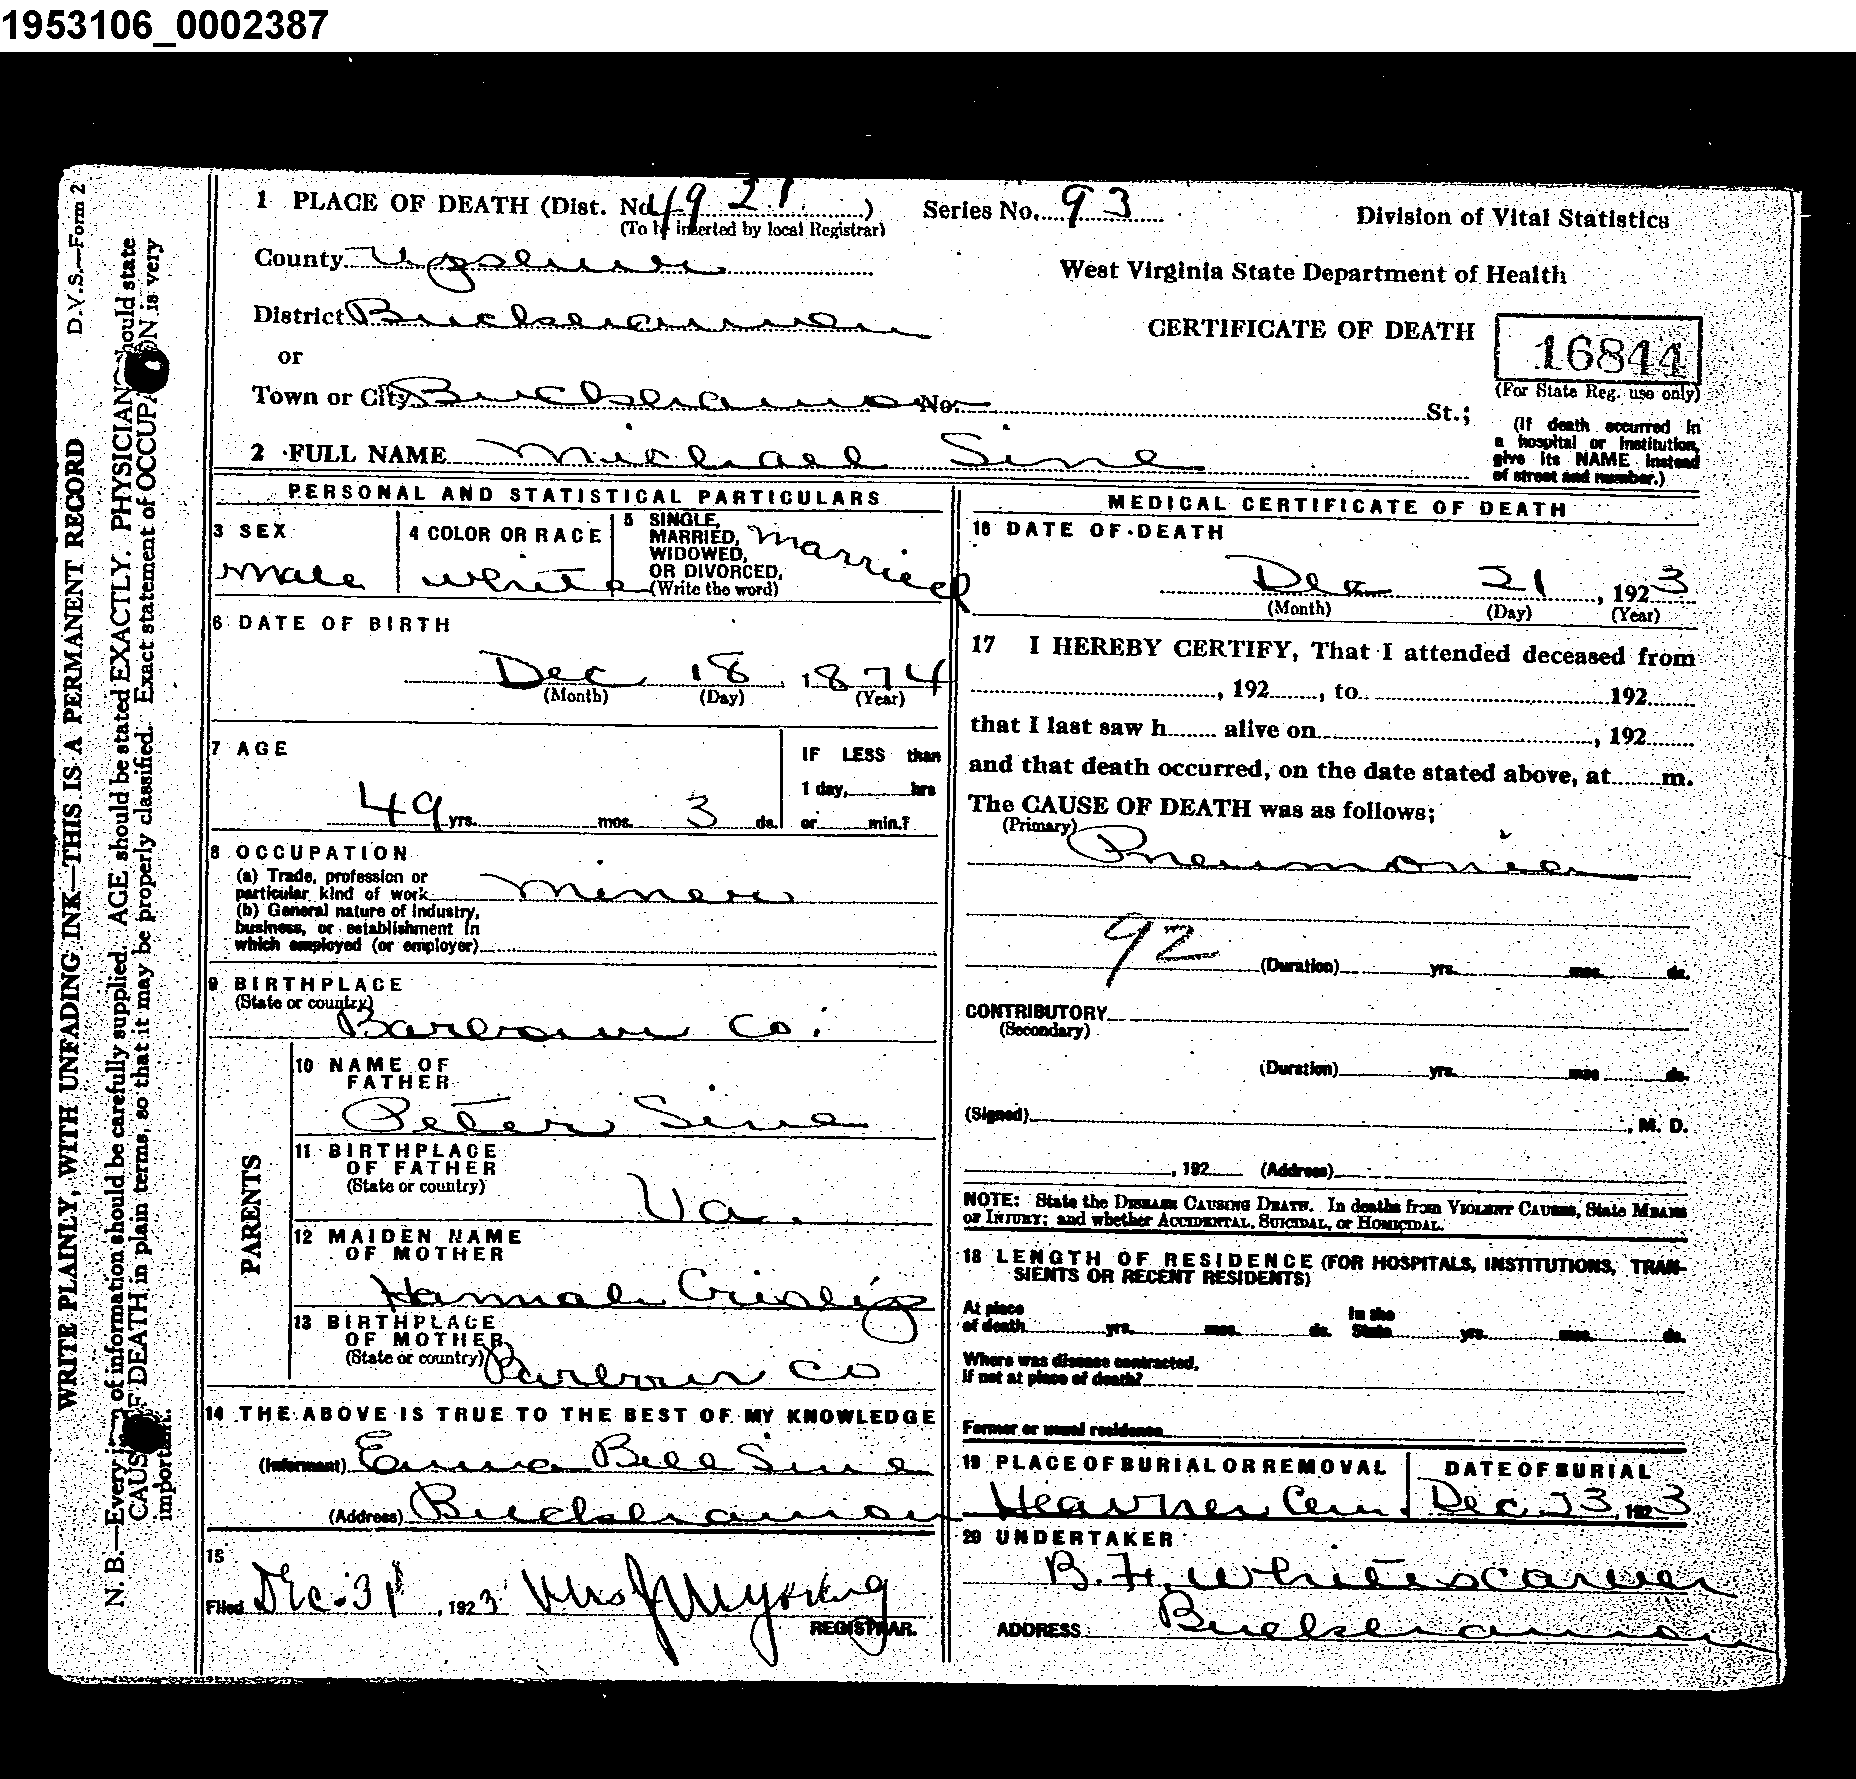 1953106_0002387
D.V.S.—Form 2
WRITE PLAINLY, WITH UNFADING INK—THIS IS A PERMANENT RECORD
N. B.—Every of information should be carefully supplied. AGE should be stated EXACTLY. PHYSICIAN should state
CAUS OF DEATH in plain terms, so that it may be properly classified. Exact statement of OCCUPA ON is very
important.
1 PLACE OF DEATH (Dist. No. 4921) Series No. 93 Division of Vital Statistics
(To be inserted by local Registrar)
County Upshur West Virginia State Department of Health
District Buckhannon CERTIFICATE OF DEATH 16844
or
(For State Reg. use only)
Town or City Buckhannon No. St.;
(If death occurred in
a hospital or institution,
give its NAME instead
of street and number.)
2 FULL NAME Michael Sine
PERSONAL AND STATISTICAL PARTICULARS
3 SEX
Male
4 COLOR OR RACE
White
5 SINGLE,
MARRIED,
WIDOWED,
OR DIVORCED,
(Write the word)
Married
6 DATE OF BIRTH
Dec 18 1874
(Month) (Day) (Year)
7 AGE
49 yrs. mos. 3 ds.
IF LESS than
1 day, hrs
or min.?
8 OCCUPATION
(a) Trade, profession or
particular kind of work Miner
(b) General nature of industry,
business, or establishment in
which employed (or employer)
9 BIRTHPLACE
(State or country)
Barbour Co.
PARENTS
10 NAME OF
FATHER
Peter Sine
11 BIRTHPLACE
OF FATHER
(State or country)
Va.
12 MAIDEN NAME
OF MOTHER
Hannah Crislip
13 BIRTHPLACE
OF MOTHER
(State or country) Barbour Co
14 THE ABOVE IS TRUE TO THE BEST OF MY KNOWLEDGE
(Informant) Emma Bell Sine
(Address) Buckhannon
15
Filed Dec. 31, 1923 Mrs J M Young
REGISTRAR.
MEDICAL CERTIFICATE OF DEATH
16 DATE OF DEATH
Dec 21, 1923
(Month) (Day) (Year)
17 I HEREBY CERTIFY, That I attended deceased from
, 192 , to 192
that I last saw h alive on , 192
and that death occurred, on the date stated above, at m.
The CAUSE OF DEATH was as follows;
(Primary)
Pneumonia
92
(Duration) yrs. mos. ds.
CONTRIBUTORY
(Secondary)
(Duration) yrs. mos ds.
(Signed) , M. D.
, 192 (Address)
NOTE: State the DISEASE CAUSING DEATH. In deaths from VIOLENT CAUSES, State MEANS
OF INJURY; and whether ACCIDENTAL, SUICIDAL, or HOMICIDAL.
18 LENGTH OF RESIDENCE (FOR HOSPITALS, INSTITUTIONS, TRAN-
SIENTS OR RECENT RESIDENTS)
At place
of death yrs. mos. ds.
In the
State yrs. mos. ds.
Where was disease contracted,
if not at place of death?
Former or usual residence
19 PLACE OF BURIAL OR REMOVAL
Heavner Cem.
DATE OF BURIAL
Dec 23, 1923
20 UNDERTAKER
B. H. Whitescarver
ADDRESS Buckhannon